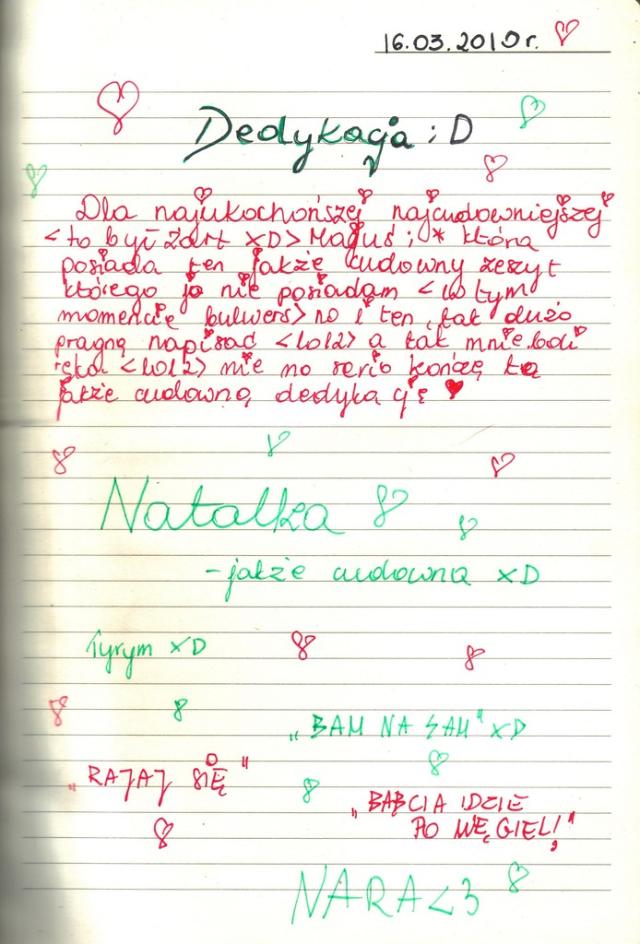 16.03.2010r.
Dedykacja ; D
Dla najukochońszej najcudowniejszej
<to był żart XD> Maguś ; * która
posiada ten jakże cudowny zeszyt
którego ja nie posiadam <w tym
momencie bulwers> no i ten, tak dużo
pragnę napisać <lol2> a tak mnie boli
ręka <lol2> nie no serio kończę tą
jakże cudowną dedykację ♥
Natalka
- jakże cudowna XD
Tyrym XD
„BAM NA SAM" XD
„RAJAJ SIĘ"
„BABCIA IDZIE
PO WĘGIEL!"
NARA <3